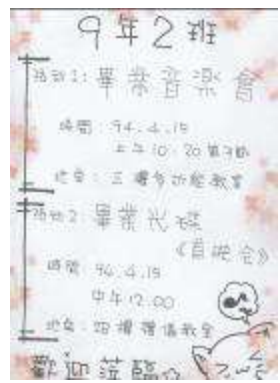 9年2班
活動1: 畢業音樂會
時間: 94.4.15
上午10:20 第3節
地點: 三樓多功能教室
活動2: 畢業光碟
《首映会》
時間: 94.4.15
中午12.00
地点: 2B樓 禮儀教室
歡迎蒞臨☆